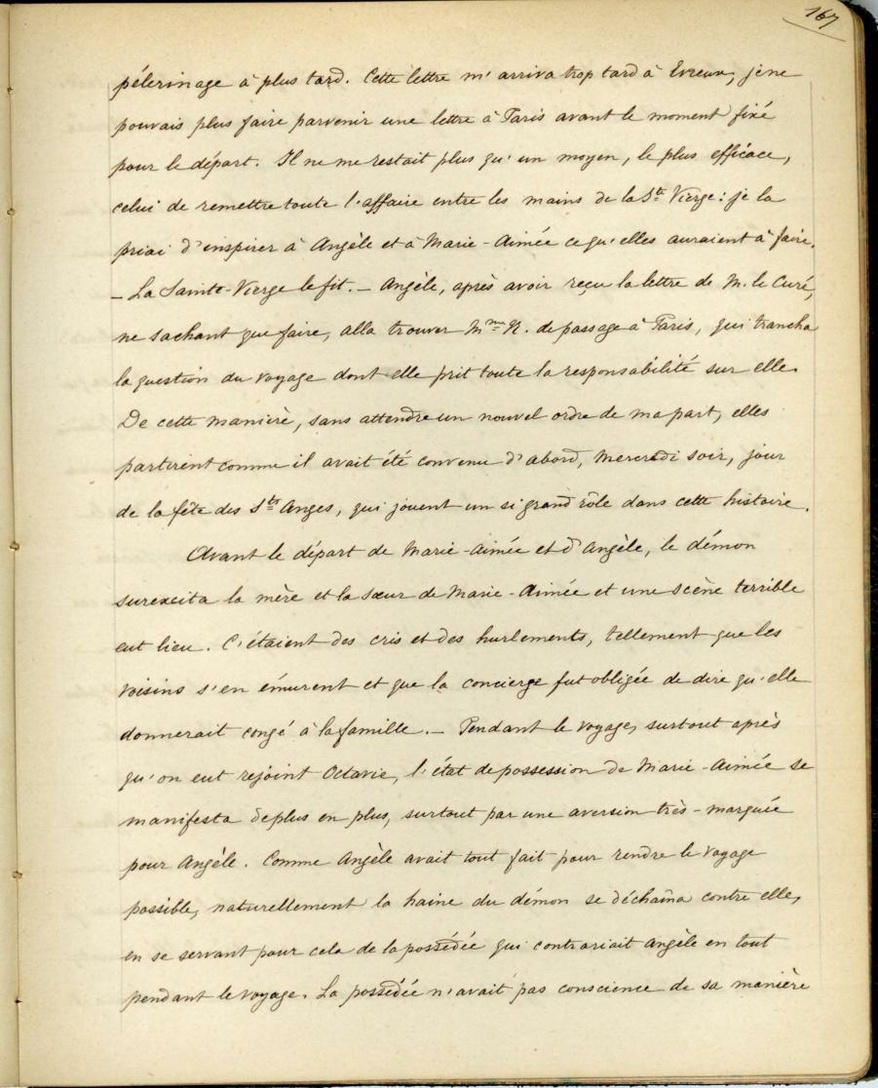 167
pélerinage à plus tard. Cette lettre m'arriva trop tard à Evreux, je ne
pouvais plus faire parvenir une lettre à Paris avant le moment fixé
pour le départ. Il ne me restait plus qu'un moyen, le plus efficace,
celui de remettre toute l'affaire entre les mains de la Ste Vierge: je la
priai d'inspirer à Angèle et à Marie-Aimée ce qu'elles auraient à faire.
– La Sainte-Vierge le fit. – Angèle, après avoir reçu la lettre de M. le Curé,
ne sachant que faire, alla trouver Mme N. de passage à Paris, qui trancha
la question du voyage dont elle prit toute la responsabilité sur elle.
De cette manière, sans attendre un nouvel ordre de ma part, elles
partirent comme il avait été convenu d'abord, Mercredi soir, jour
de la fête des Sts Anges, qui jouent un si grand rôle dans cette histoire.
Avant le départ de Marie-Aimée et d'Angèle, le démon
surexcita la mère et la sœur de Marie-Aimée et une scène terrible
eut lieu. C'étaient des cris et des hurlements, tellement que les
voisins s'en émurent et que la concierge fut obligée de dire qu'elle
donnerait congé à la famille. – Pendant le voyage, surtout après
qu'on eut rejoint Octavie, l'état de possession de Marie-Aimée se
manifesta de plus en plus, surtout par une aversion très-marquée
pour Angèle. Comme Angèle avait tout fait pour rendre le voyage
possible, naturellement la haine du démon se déchaîna contre elle,
en se servant pour cela de la possédée qui contrariait Angèle en tout
pendant le voyage. La possédée n'avait pas conscience de sa manière